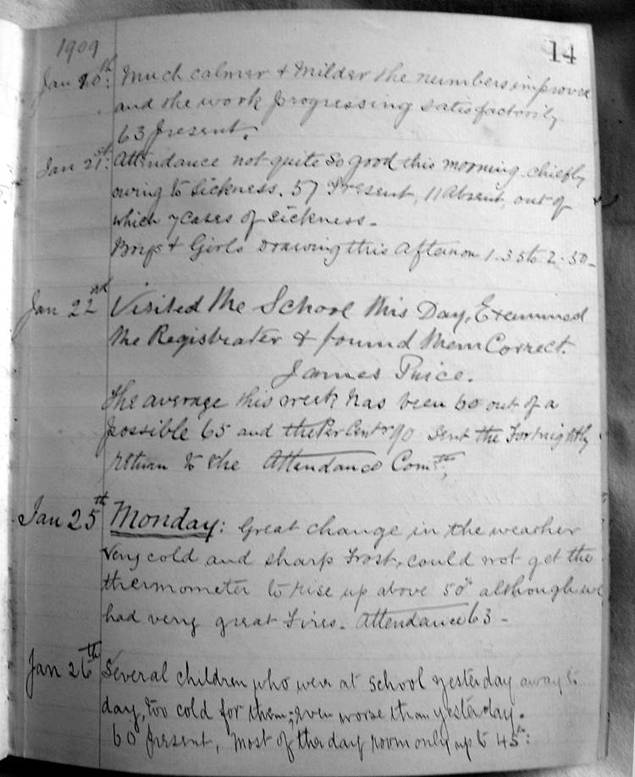 1909
14
Jan 20th: Much calmer & Milder the numbers improved
and the work progressing satisfactorily
63 present.
Jan 21st: Attendance not quite so good this morning, chiefly
owing to sickness. 57 Present, 11 Absent, out of
which 7 cases of sickness.
Boys & Girls Drawing this Afternoon 1.35 to 2.30.
Jan 22nd Visited the School this Day, Examined
the Registrater & found them Correct.
James Price.
The average this week has been 60 out of a
possible 65 and the Per Cent 90 Sent the Fortnightly
return to the Attendance Comtee,
Jan 25th Monday: Great change in the weather
very cold and sharp Frost, could not get the
thermometer to rise up above 50° although we
had very great Fires. Attendance 63 -
Jan 26th Several children who were at school yesterday away to
day, too cold for them; even worse than yesterday.
60 present, most of the day room only up to 45°: